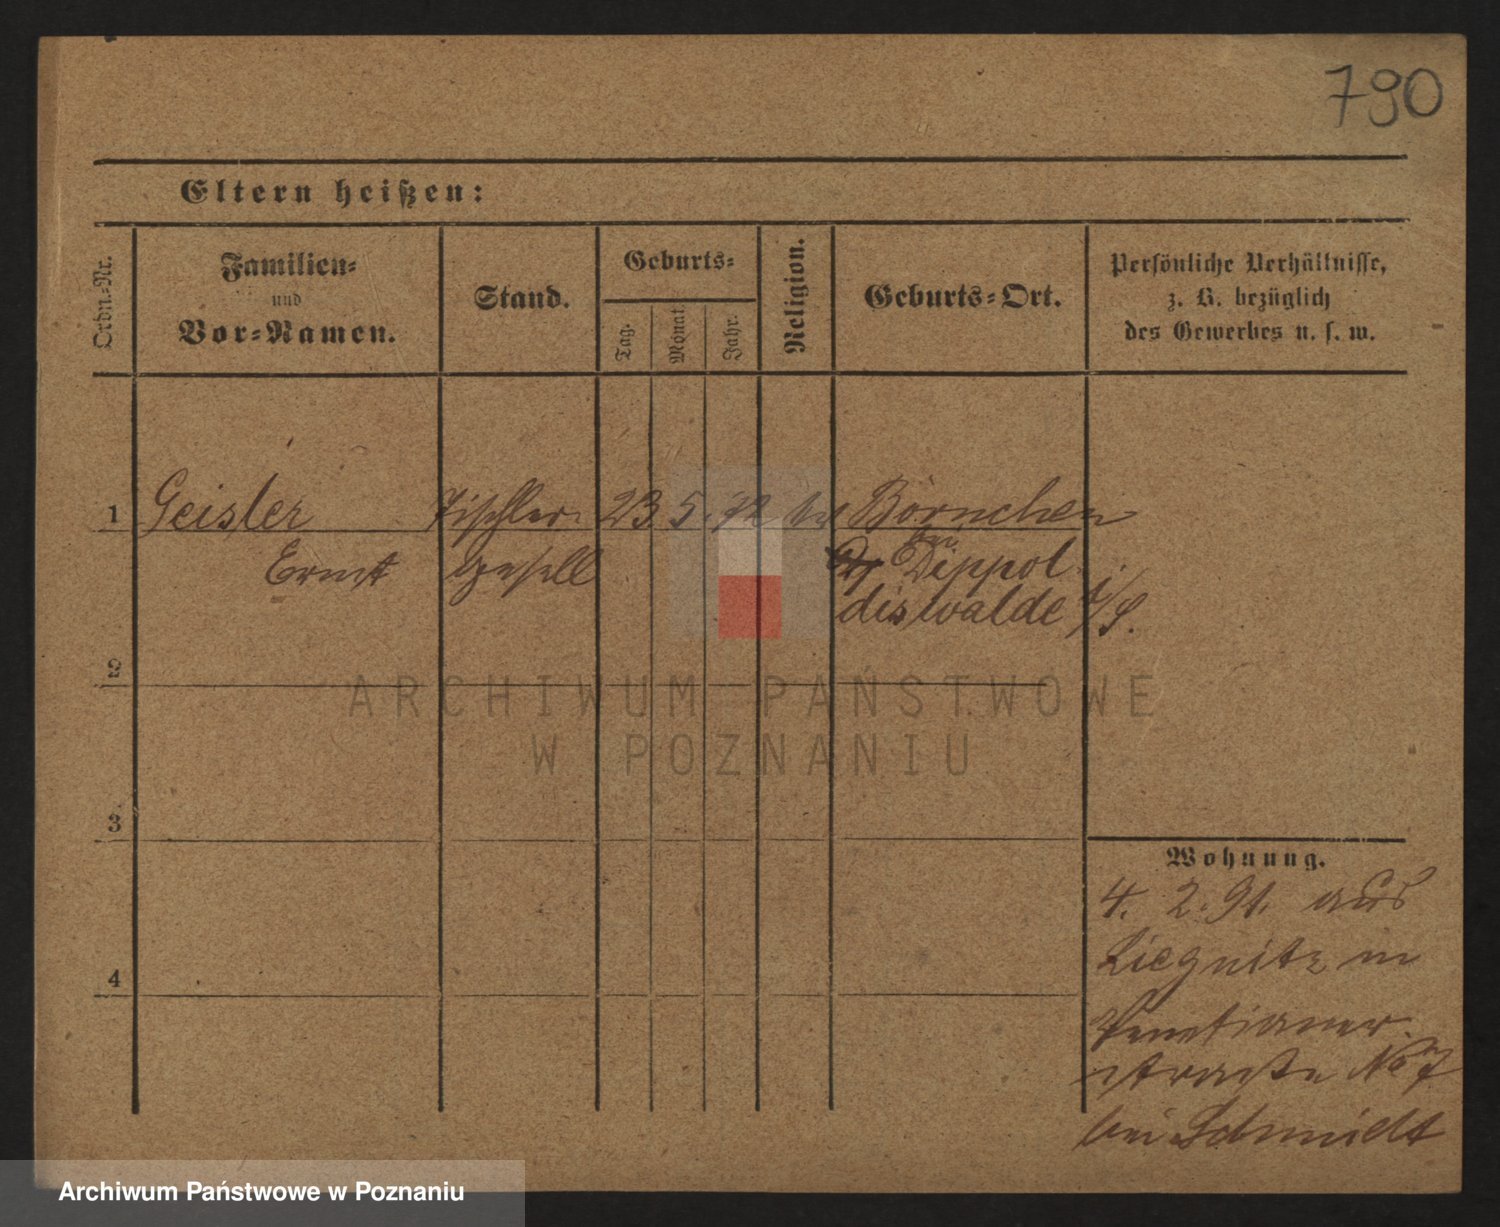 790
Eltern heißen:
Ordn.-Nr.
Familien-
und
Vor-Namen.
Stand.
Geburts-
Tag.
Monat.
Jahr.
Religion.
Geburts-Ort.
Persönliche Verhältnisse,
z. B. bezüglich
des Gewerbes u. s. w.
1 Geisler Tischler 23 5. 72 Börnchen
bei
Ernst gesell Dippol
diswalde i/S.
2
ARCHIWUM PAŃSTWOWE
W POZNANIU
3
Wohnung.
4. 2. 91. aus
Liegnitz in
4
Venetianer
straße No 7
bei Schmidt
Archiwum Państwowe w Poznaniu